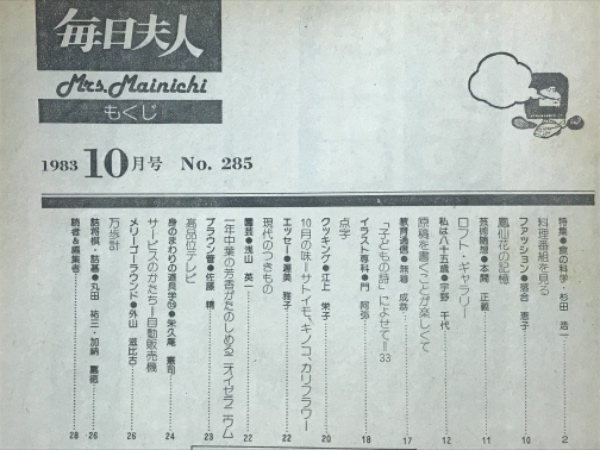 毎日夫人
Mrs.Mainichi
もくじ
1983 10月号 No. 285
特集●食の科学・杉田 浩一……2
料理番組を見る
ファッション●落合 恵子……10
鳳仙花の記憶
芸術随想●本間 正義……11
ロフト・ギャラリー
私は八十五歳●宇野 千代……12
原稿を書くことが楽しくて
教育通信●無着 成恭……17
「子どもの詩」によせて=33
イラスト専科●門 阿弥……18
点字
クッキング●江上 栄子……20
10月の味=サトイモ、キノコ、カリフラワー
エッセー●渥美 雅子……22
現代のつきもの
園芸●浅山 英一……22
一年中葉の芳香がたのしめるニオイゼラニウム
ブラウン管●佐藤 精……23
高品位テレビ
身のまわりの道具学●栄久庵 憲司……24
サービスのかたち=自動販売機
メリーゴーラウンド●外山 滋比古……26
万歩計
詰将棋・詰碁●丸田 祐三・加納 嘉徳……26
読者&編集者……28